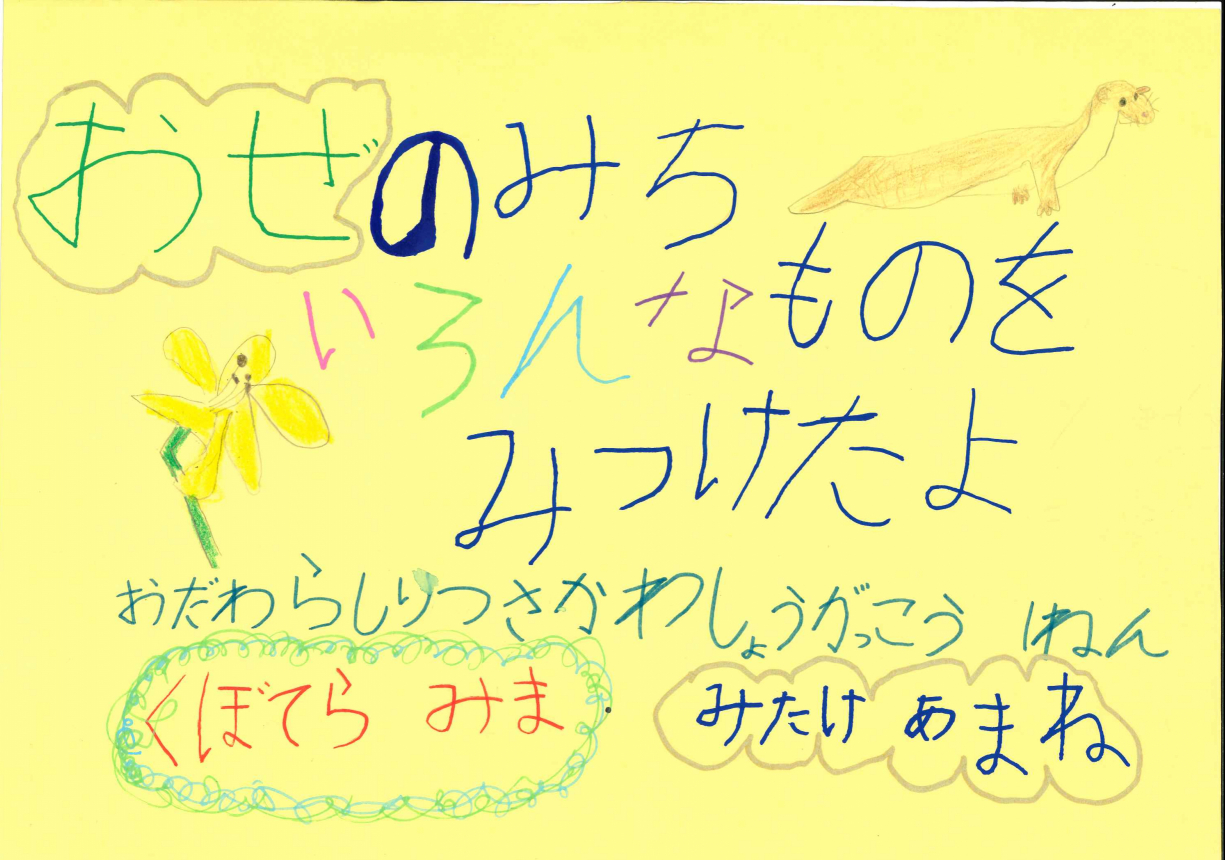 おぜのみち
いろんなものを
みつけたよ
おだわらしりつさかわしょうがっこう 1ねん
くぼてら みま
みたけ あまね